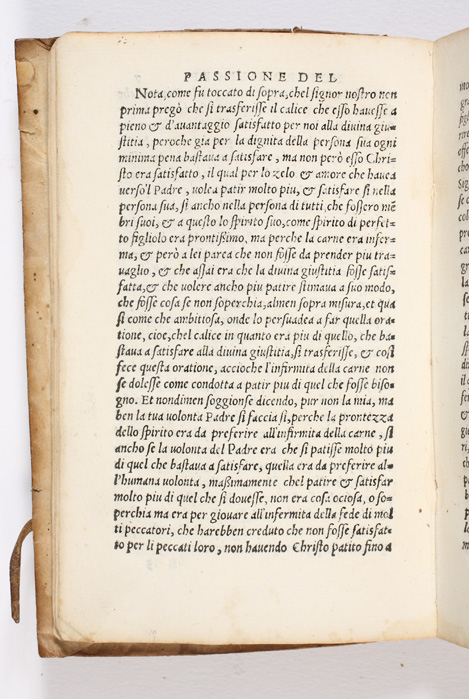 PASSIONE DEL
Nota, come fu toccato di sopra, chel signor nostro non
prima pregò che si trasferisse il calice che esso hauesse a
pieno & d'auantaggio satisfatto per noi alla diuina giu-
stitia, peroche gia per la dignita della persona sua ogni
minima pena bastaua a satisfare, ma non però esso Chri-
sto era satisfatto, il qual per lo zelo & amore che hauea
verso'l Padre, uolea patir molto piu, & satisfare sì nella
persona sua, sì ancho nella persona di tutti, che fossero mē
bri suoi, & a questo lo spirito suo, come spirito di perfet-
to figliolo era prontissimo, ma perche la carne era infer-
ma, & però a lei parea che non fosse da prender piu tra-
uaglio, & che assai era che la diuina giustitia fosse satis-
fatta, & che uolere ancho piu patire stimaua a suo modo,
che fosse cosa se non soperchia, almen sopra misura, et qua
si come che ambitiosa, onde lo persuadea a far quella ora-
tione, cioe, chel calice in quanto era piu di quello, che ba-
staua a satisfare alla diuina giustitia, si trasferisse, & così
fece questa oratione, accioche l'infirmita della carne non
se dolesse come condotta a patir piu di quel che fosse biso-
gno. Et nondimen soggionse dicendo, pur non la mia, ma
ben la tua uolonta Padre si faccia sì, perche la prontezza
dello spirito era da preferire all'infirmita della carne, sì
ancho se la uolonta del Padre era che si patisse molto piu
di quel che bastaua a satisfare, quella era da preferire al-
l'humana uolonta, maßimamente chel patire & satisfar
molto piu di quel che si douesse, non era cosa ociosa, o so-
perchia ma era per giouare all'infermita della fede di mol
ti peccatori, che harebben creduto che non fosse satisfat-
to per li peccati loro, non hauendo Christo patito fino a